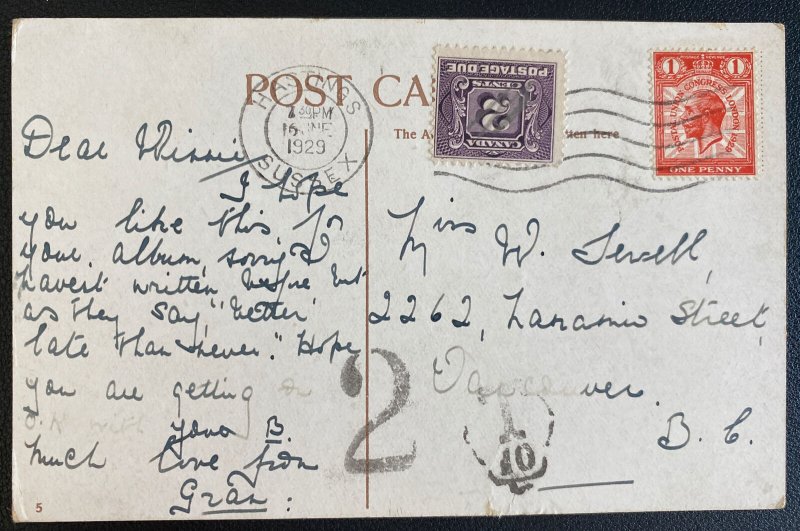 POST CA
The A
tten here
HASTINGS
SUSSEX
30PM
16 JNE
1929
POSTAGE DUE
2
CENTS
CANADA
1 1
POSTAL UNION CONGRESS LONDON 1929
ONE PENNY
Dear Winnie
I hope
you like this for
your album, sorry I
havent written before but
as they say, "better
late than never." Hope
you are getting on
O.K with your B.
Much love from
Gran.
Miss W. Sewell,
2262, Laramie Street,
Vancouver.
B. C.
2
T
10
5